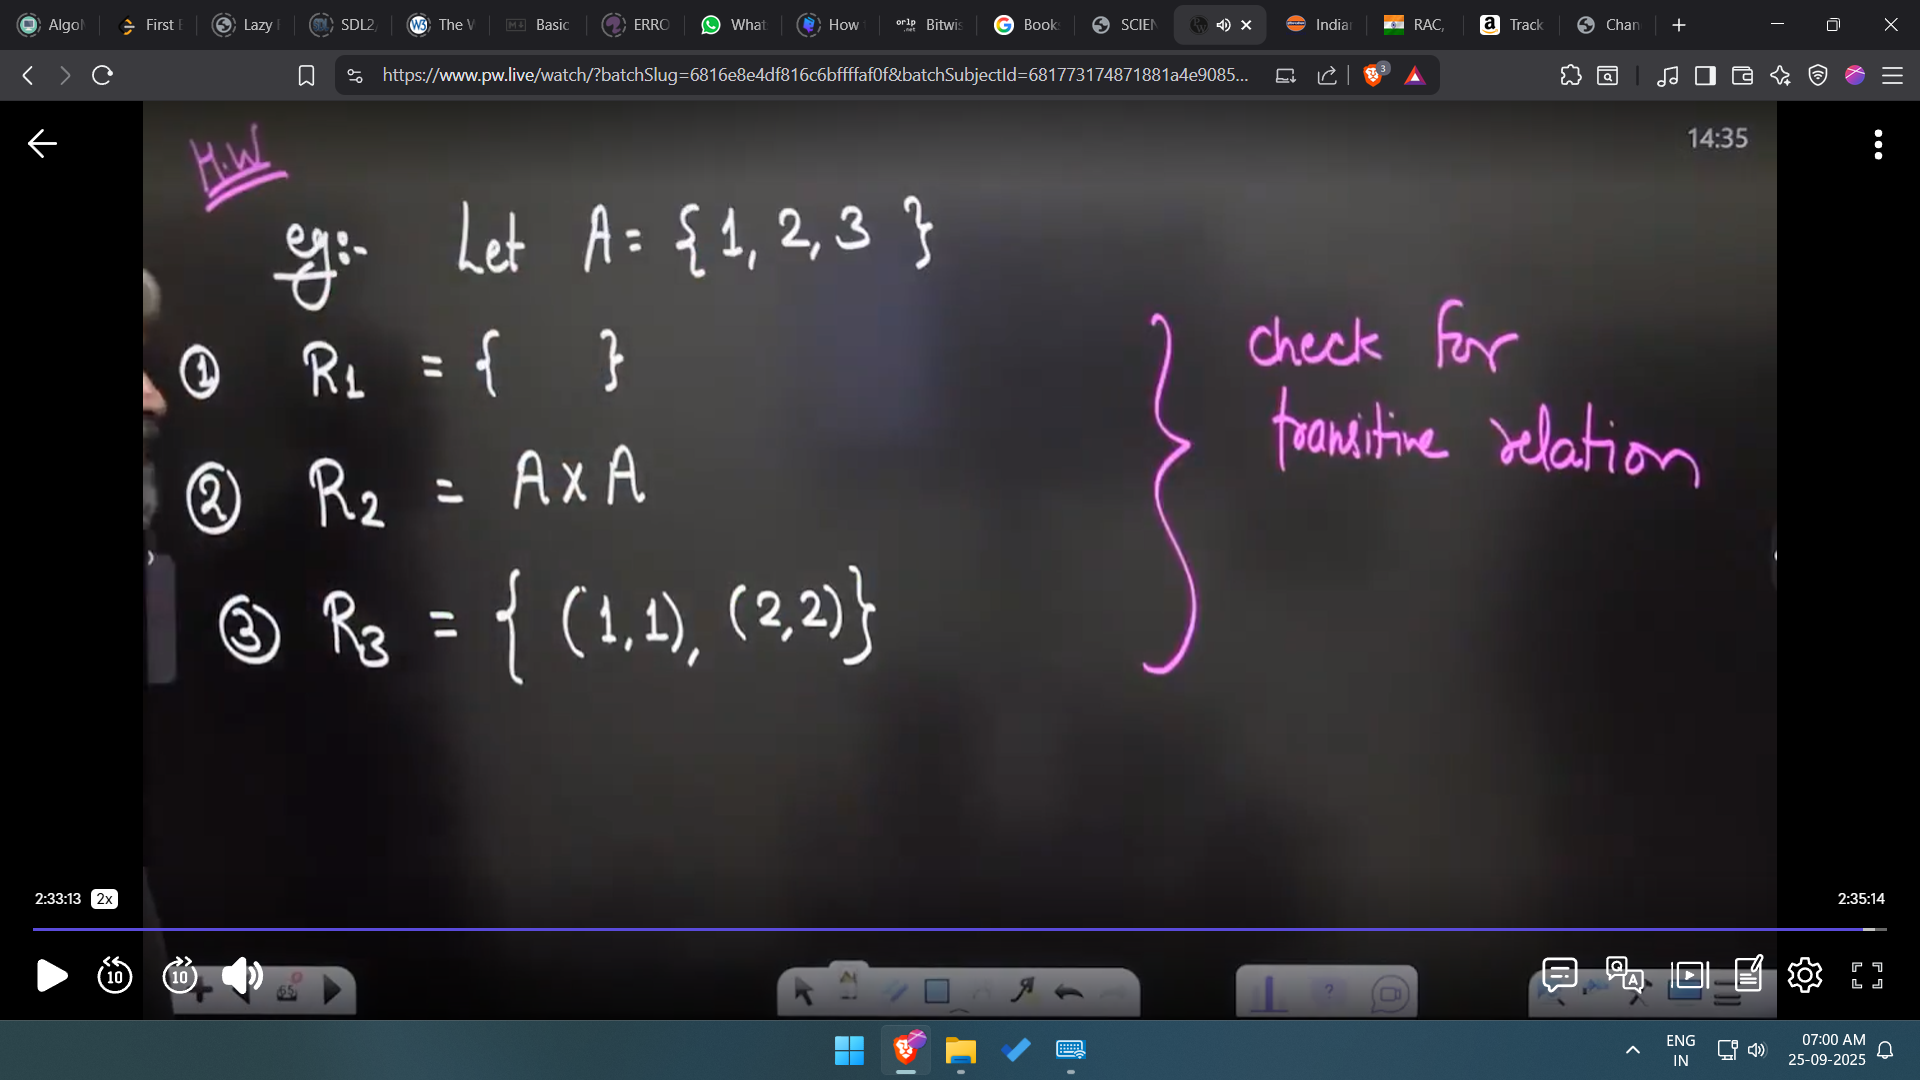 Algo
First E
Lazy
SDL2
The W
Basic
ERRO
What
How
Bitwis
Book
SCIEN
India
RAC,
Track
Chan
https://www.pw.live/watch/?batchSlug=6816e8e4df816c6bffffaf0f&batchSubjectId=681773174871881a4e9085...
3
H.W
14:35
eg:- Let A = { 1, 2, 3 }
① R1 = { }
② R2 = A x A
③ R3 = { (1,1), (2,2)}
check for
transitive relation
2:33:13 2x
2:35:14
10 10
65
ENG
IN
07:00 AM
25-09-2025